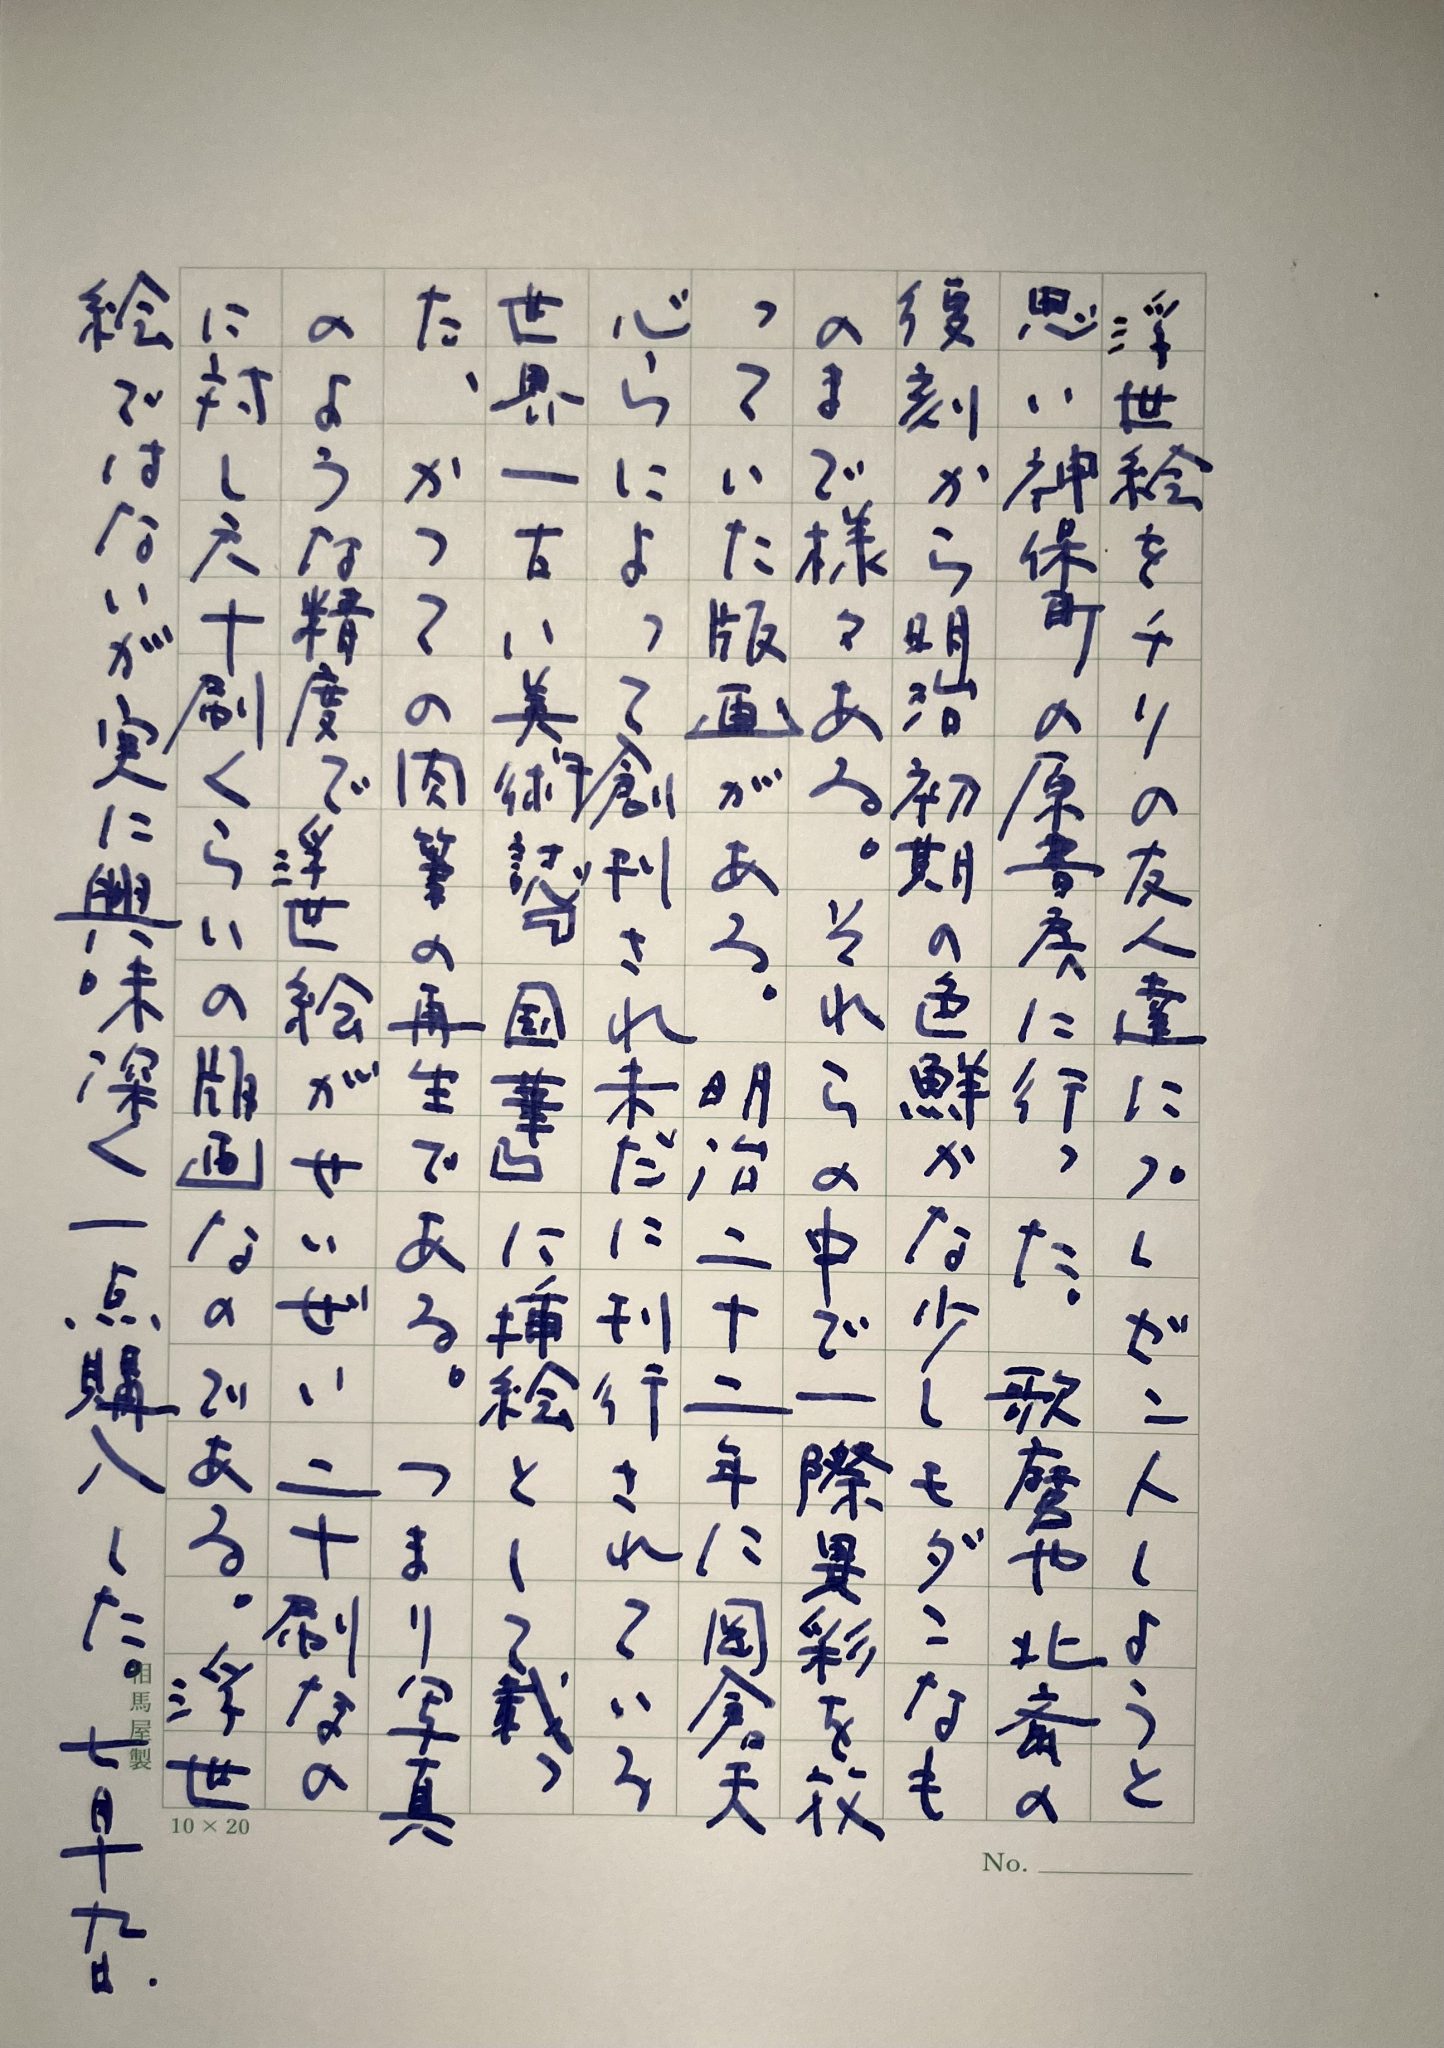 浮世絵をチリの友人達にプレゼントしようと
思い神保町の原書房に行った。歌麿や北斎の
復刻から明治初期の色鮮かな少しモダンなも
のまで様々ある。それらの中で一際異彩を放
っていた版画がある。明治二十二年に岡倉天
心らによって創刊され未だに刊行されている
世界一古い美術誌国華に挿絵として載っ
た、かつての肉筆の再生である。つまり写真
のような精度で浮世絵がせいぜい二十刷なの
に対し六十刷くらいの版画なのである。浮世
絵ではないが実に興味深く一点購入した。七月十九日.
相馬屋製
10×20
No.